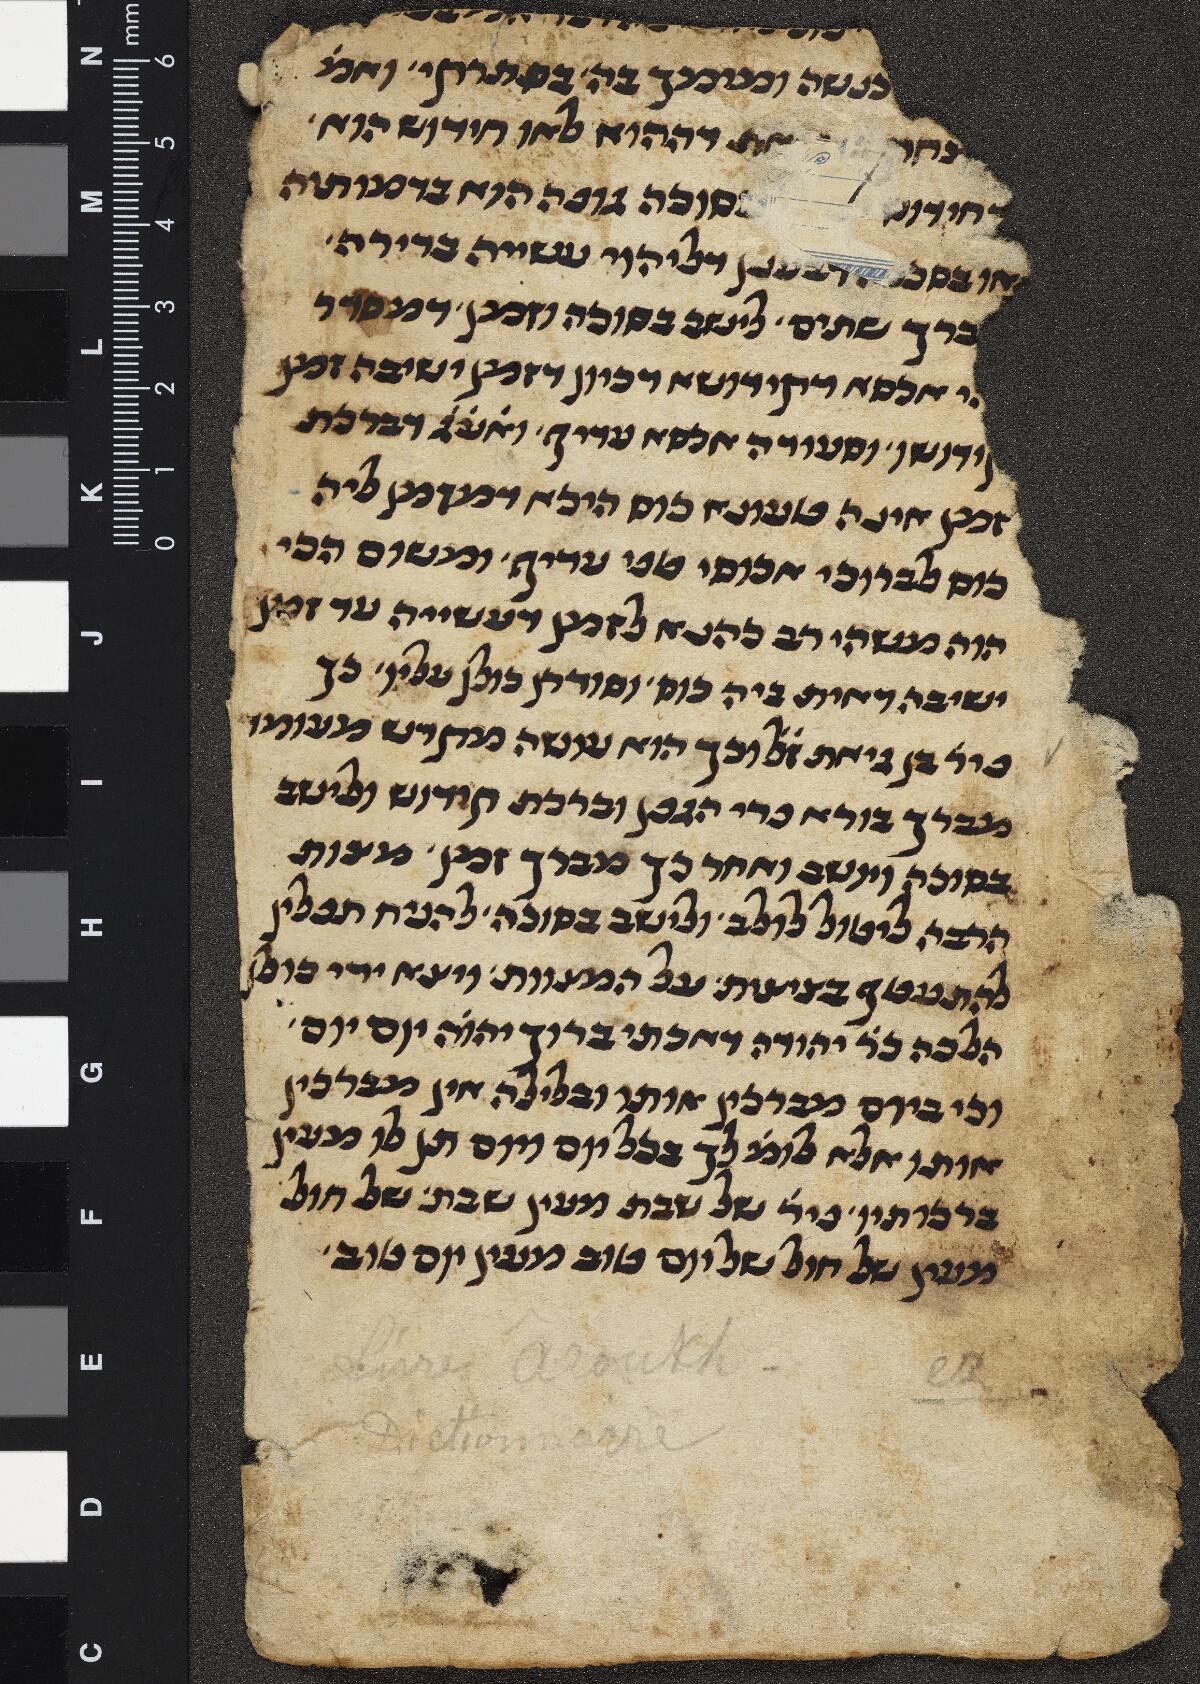 כנשה ומטמנך בה בסתרתי׳ ואמ׳
דההוא לאו חידוש הוא׳
סוכה גופה הוא ברמנותיה
דליהוי עשייה בדירה׳
ברך שתים׳ לישב בסוכה וזמן׳ דמסדר
אכסא דקידושא דכיון דזמן ישיבה זמן
קידושן׳ וסעודה אכסא עדיף׳ ואע׳ג׳ דברכת
זמן אינה טעונא כוס היכא דמקמן ליה
כוס לברוכי אכוסי טפי עדיף׳ ומשום הכי
הוה משהי רב כהנא לזמן דעשייה עד זמן
ישיבה דאית ביה כוס׳ וסודרן כולן עליו׳ כך
פיר׳ בן גיאת ז׳ל׳ וכך הוא עושה מקדש מעומד
מברך בורא פרי הגפן וברכת קידוש ולישב
בסוכה ויושב ואחר כך מברך זמן׳ מצות
הרבה ליטול לולב׳ ולישב בסוכה׳ להניח תפלין
להתעטף בציצית׳ על המצוות׳ ויצא ידי כולן
הלכה כר׳ יהודה דאכתי ברוך יהוה יום יום׳
וכי ביום מברכין אותו ובלילה אין מברכין
אותו אלא לומ׳ לך בכל יום ויום תן לו מעין
ברכותיו׳ פיר׳ של שבת מעין שבת׳ של חול
מעין של חול של יום טוב מעין יום טוב׳
Livre Aroukh -
Dictionnaire